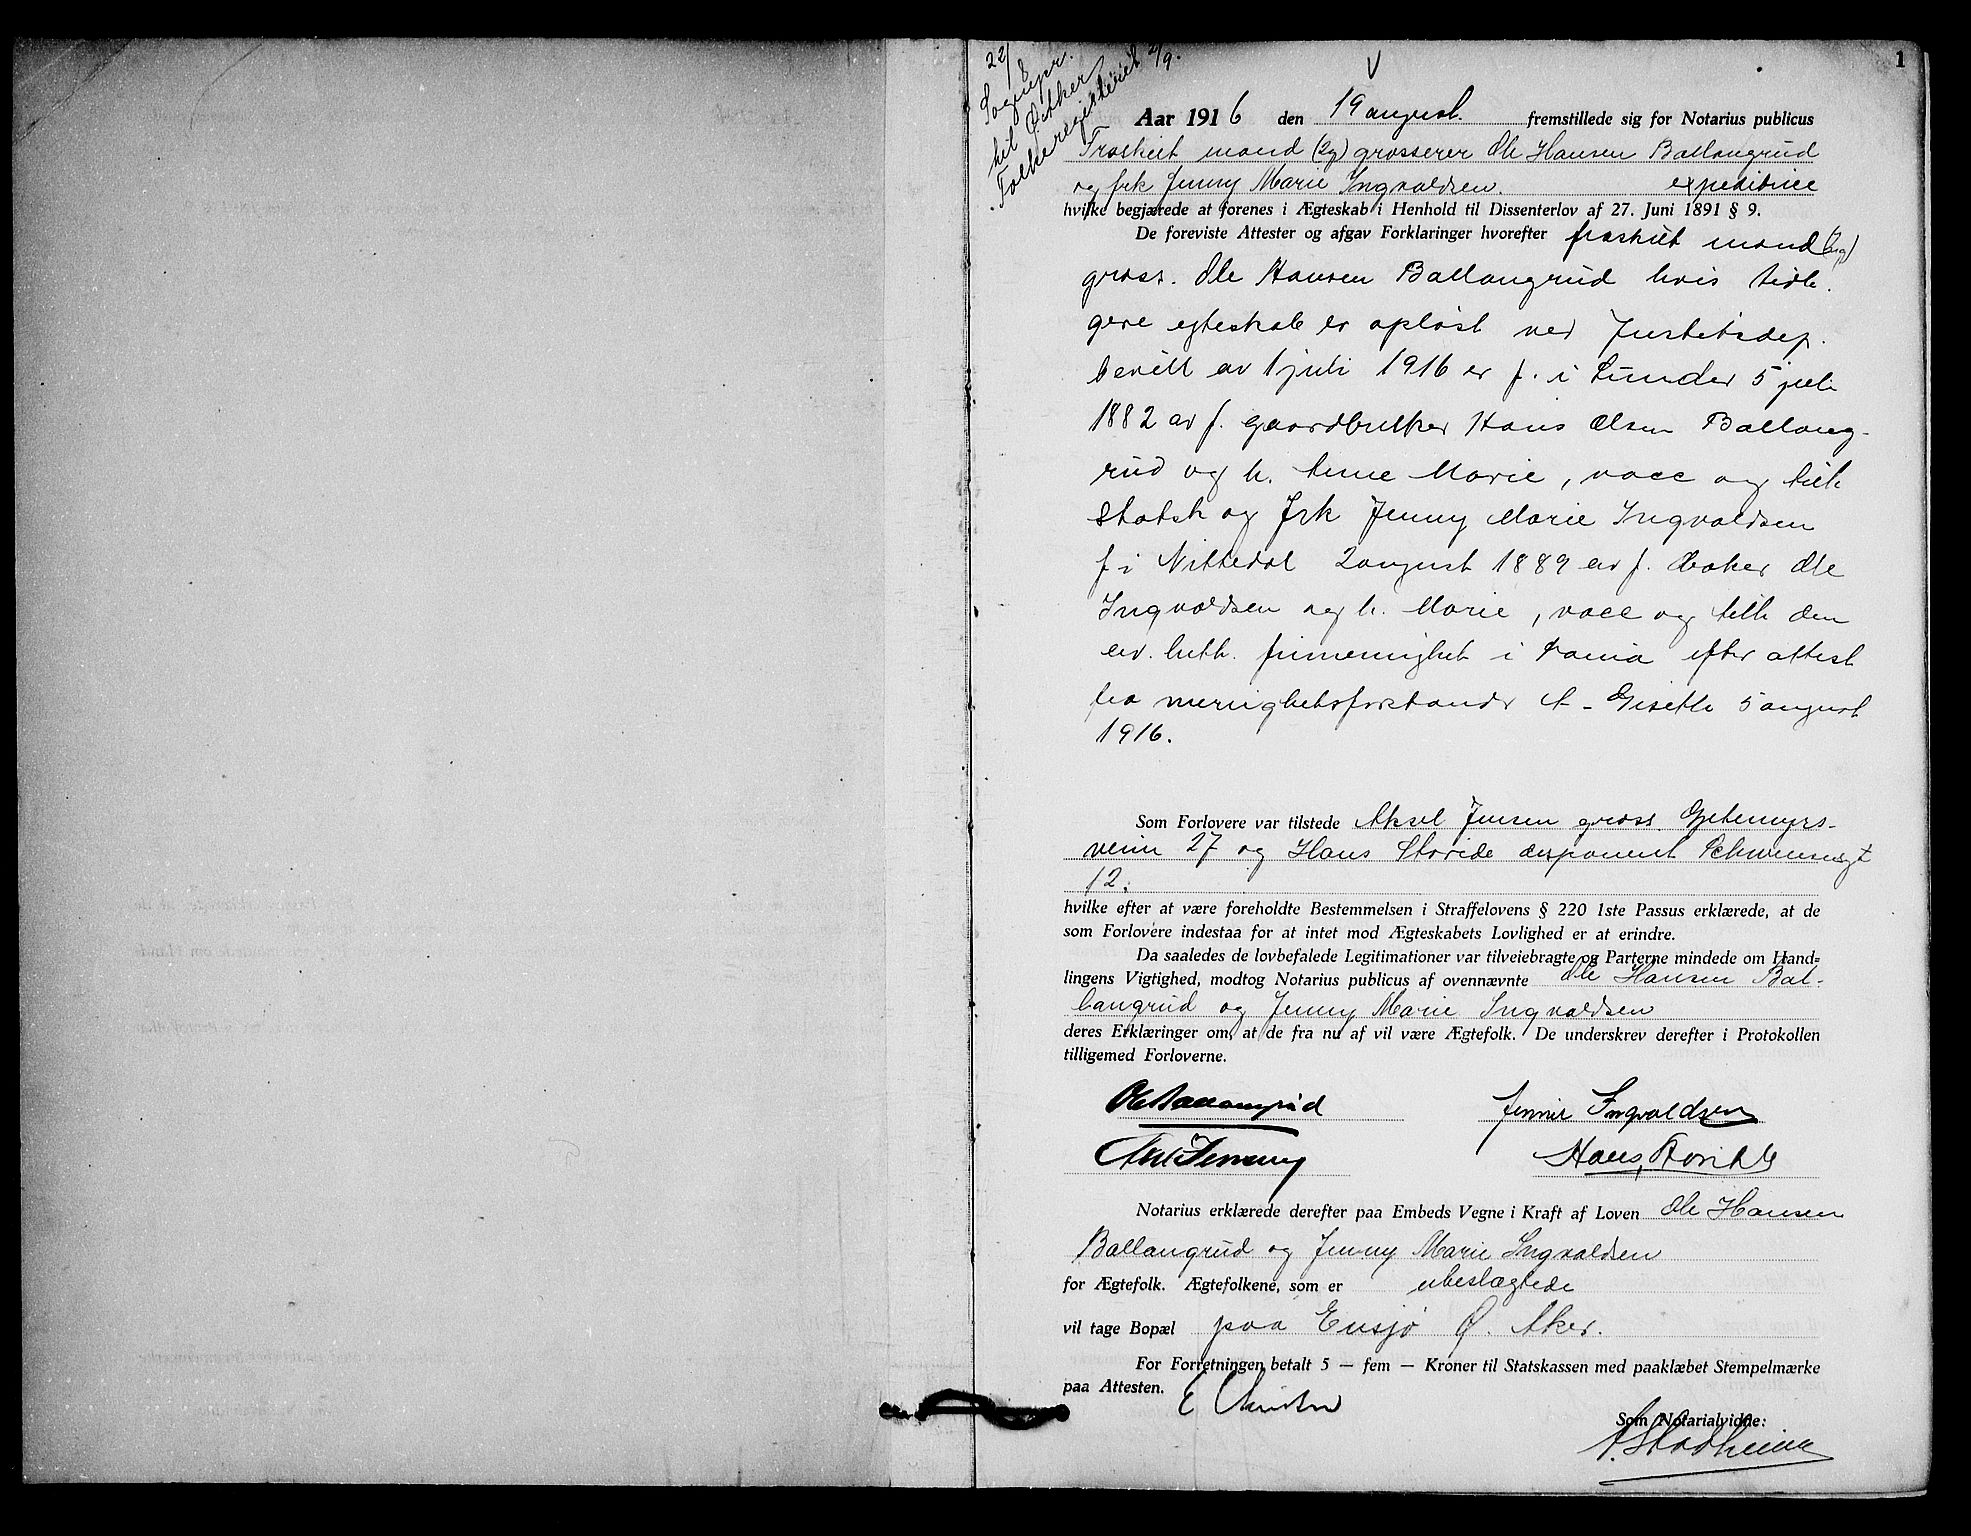 22/8
Sognepr.
til Ø Aker
Folkeregisteriet 2/9.
1
Aar 1916 den 19 august. fremstillede sig for Notarius publicus
Fraskilt mand (2g) grosserer Ole Hansen Ballangrud
og frk Jenny Marie Ingvaldsen. expeditrice
hvilke begjærede at forenes i Ægteskab i Henhold til Dissenterlov af 27. Juni 1891 § 9.
De foreviste Attester og afgav Forklaringer hvorefter fraskilt mand (2g)
gross. Ole Hansen Ballangrud hvis tidli-
gere egteskab er opløst ved Justitsdep.
bevill av 1 juli 1916 er f. i Lunder 5 juli
1882 av f. gaardbruker Hans Olsen Ballang-
rud og h. Anne Marie, vacc og tilh
Statsk og Frk Jenny Marie Ingvaldsen
f i Nittedal 2 august 1889 av f. Baker Ole
Ingvaldsen og h. Marie, vacc og tilh den
ev. luth. frimenighet i Kania efter attest
fra menighetsforstander A. Gisetle 5 august
1916.
Som Forlovere var tilstede Aksel Jensen gross. Gjetemyrs-
veien 27 og Hans Storide disponent Schwensensgt
12.
hvilke efter at være foreholdte Bestemmelsen i Straffelovens § 220 1ste Passus erklærede, at de
som Forlovere indestaa for at intet mod Ægteskabets Lovlighed er at erindre.
Da saaledes de lovbefalede Legitimationer var tilveiebragte og Parterne mindede om Hand=
lingens Vigtighed, modtog Notarius publicus af ovennævnte Ole Hansen Bal-
langrud og Jenny Marie Ingvaldsen
deres Erklæringer om, at de fra nu af vil være Ægtefolk. De underskrev derefter i Protokollen
tilligemed Forloverne.
Ole Ballangrud Jennie Ingvaldsen
Axel Jensen Hans Storide
Notarius erklærede derefter paa Embeds Vegne i Kraft af Loven Ole Hansen
Ballangrud og Jenny Marie Ingvaldsen
for Ægtefolk. Ægtefolkene, som er ubeslægtede
vil tage Bopæl paa Ensjø Ø. Aker.
For Forretningen betalt 5 — fem — Kroner til Statskassen med paaklæbet Stempelmærke
paa Attesten.
Som Notarialvidne: